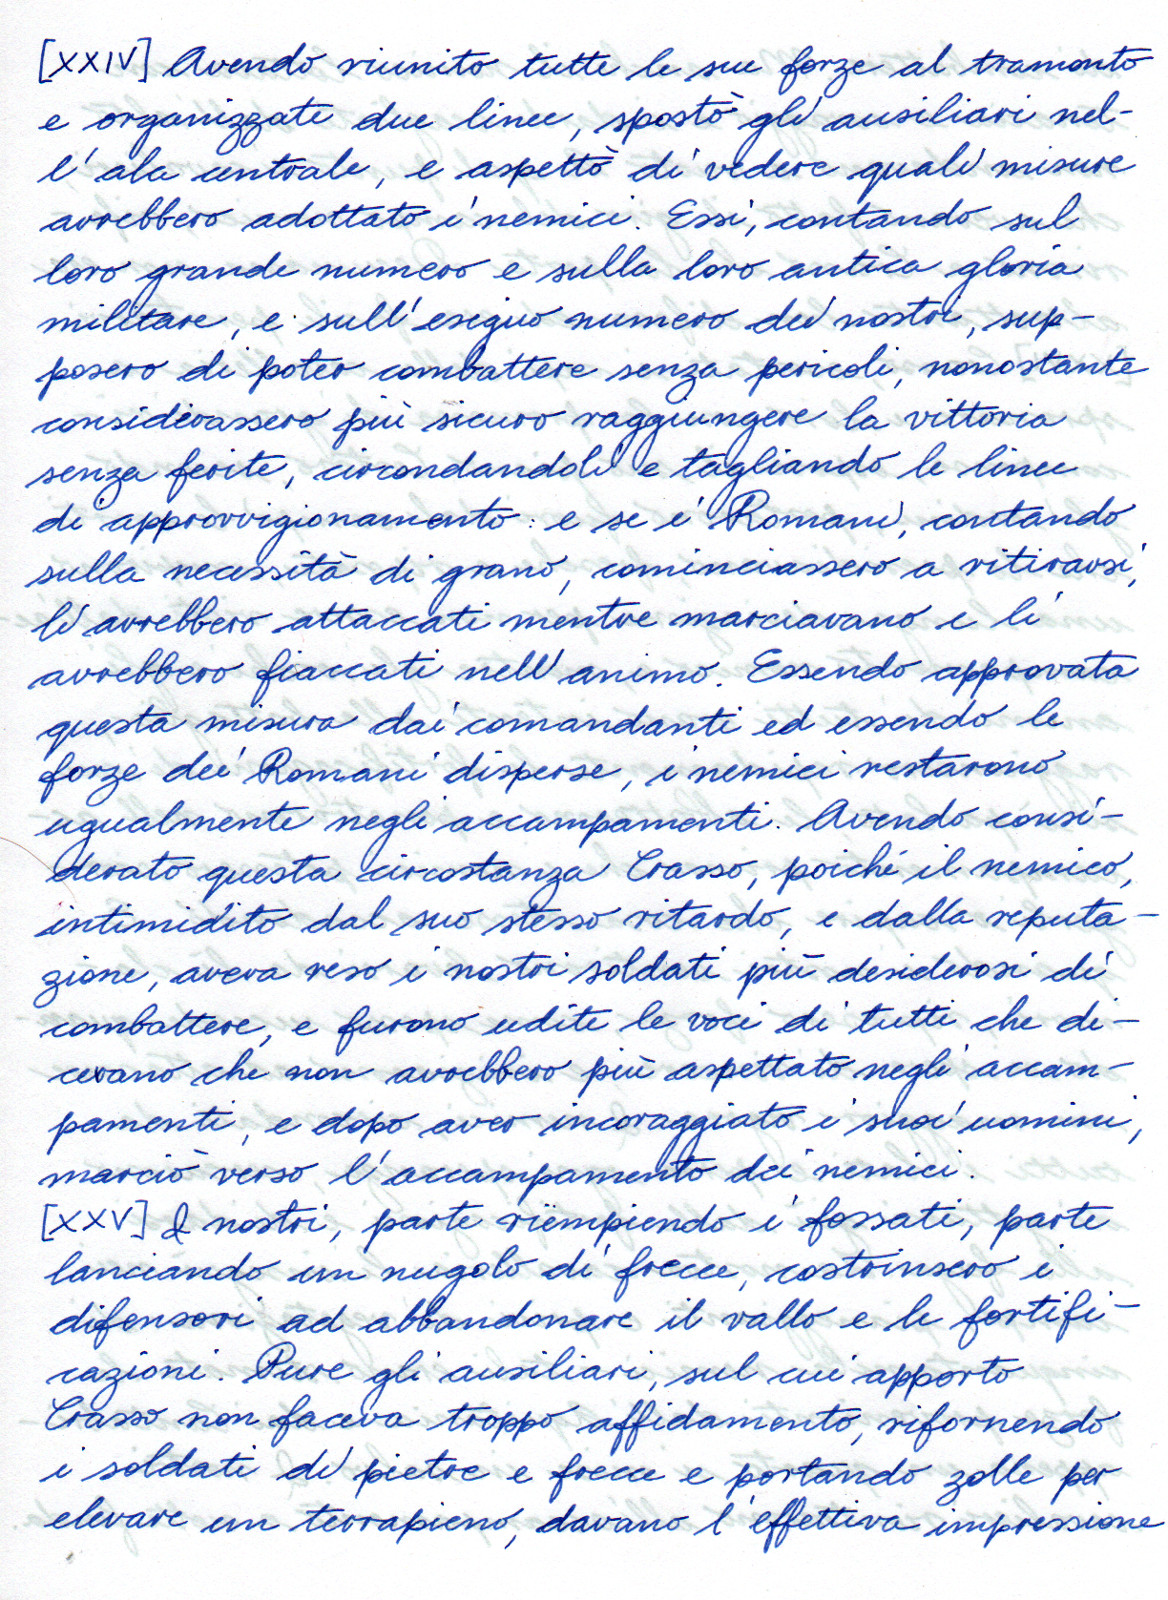 [XXIV] Avendo riunito tutte le sue forze al tramonto
e organizzate due linee, spostò gli ausiliari nel-
l'ala centrale, e aspettò di vedere quali misure
avrebbero adottato i nemici. Essi, contando sul
loro grande numero e sulla loro antica gloria
militare, e sull'esiguo numero dei nostri, sup-
posero di poter combattere senza pericoli, nonostante
considerassero più sicuro raggiungere la vittoria
senza ferite, circondandoli e tagliando le linee
di approvvigionamento: e se i Romani, contando
sulla necessità di grano, cominciassero a ritirarsi,
li avrebbero attaccati mentre marciavano e li
avrebbero fiaccati nell'animo. Essendo approvata
questa misura dai comandanti ed essendo le
forze dei Romani disperse, i nemici restarono
ugualmente negli accampamenti. Avendo consi-
derato questa circostanza Crasso, poiché il nemico,
intimidito dal suo stesso ritardo, e dalla reputa-
zione, aveva reso i nostri soldati più desiderosi di
combattere, e furono udite le voci di tutti che di-
cevano che non avrebbero più aspettato negli accam-
pamenti, e dopo aver incoraggiato i suoi uomini,
marciò verso l'accampamento dei nemici.
[XXV] I nostri, parte riempiendo i fossati, parte
lanciando un nugolo di frecce, costrinsero i
difensori ad abbandonare il vallo e le fortifi-
cazioni. Pure gli ausiliari, sul cui apporto
Crasso non faceva troppo affidamento, rifornendo
i soldati di pietre e frecce e portando zolle per
elevare un terrapieno, davano l'effettiva impressione